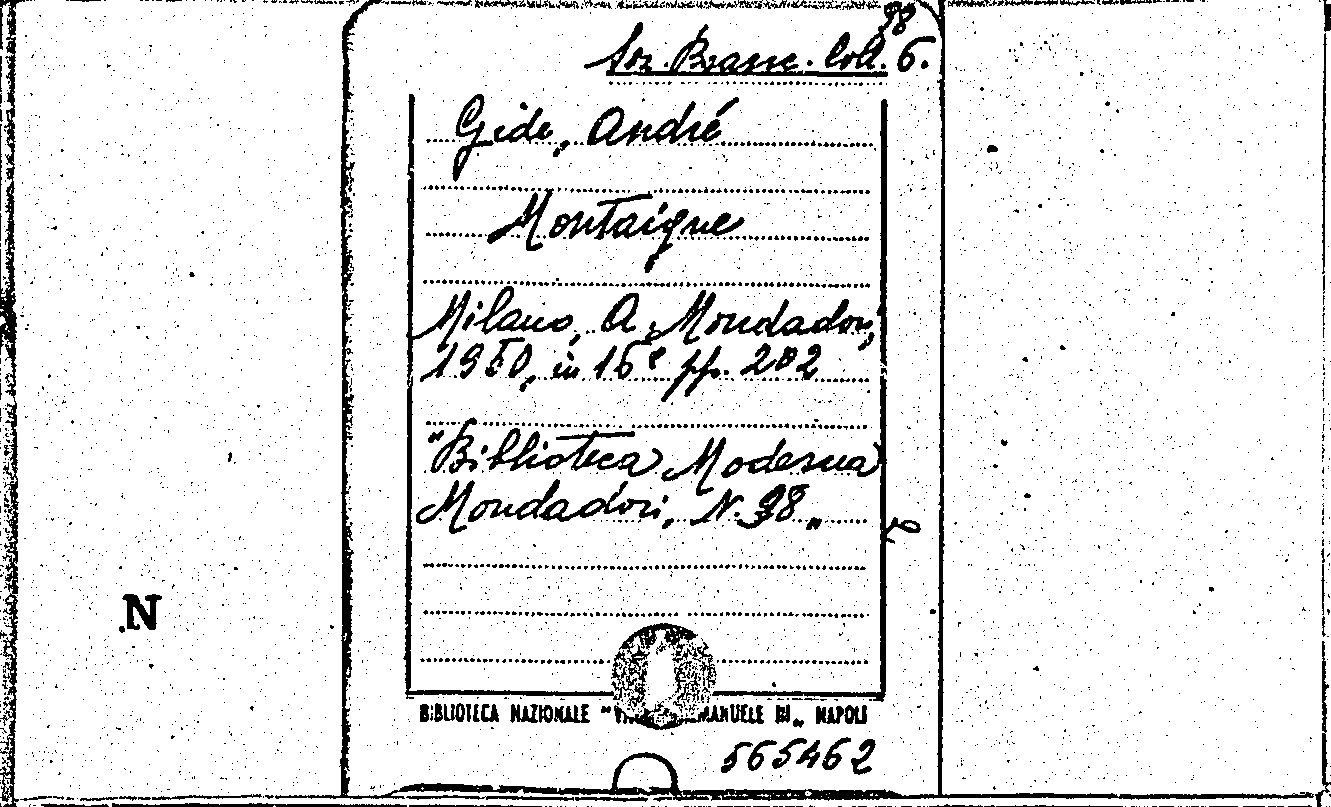 98
Sez. Brasc. Coll. 6.
Gide, André
Montaigne
Milano, A. Mondadori,
1950, in 16° pp. 202
"Biblioteca Moderna
Mondadori, N. 98"
N
BIBLIOTECA NAZIONALE "VITT. EMANUELE III" NAPOLI
565462